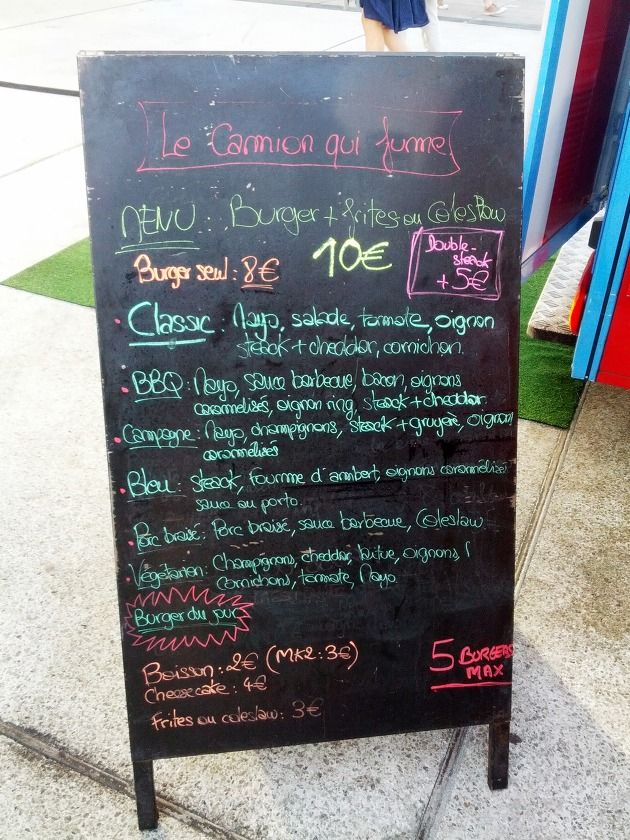 Le Camion qui fume
MENU : Burger + frites ou ColesBow
10€
Burger seul : 8€
Double-
steack
+ 5€
• Classic : Mayo, salade, tomate, oignon
steack + cheddar, cornichon.
• BBQ : Mayo, sauce barbecue, bacon, oignons
caramelisés, oignon ring, steack + cheddar.
• Campagne : Mayo, champignons, steack + gruyère, oignon
caramélisés
• Bleu : steack, fourme d'ambert, oignons caramélisés
sauce au porto.
• Porc braisé : Porc braisé, sauce barbecue, Coleslaw
• Végétarien : Champignons, cheddar, laitue, oignons,
Cornichons, tomate, Mayo
Burger du jour
Boisson : 2€ (MK2 : 3€)
Cheesecake : 4€
5 BURGERS
MAX
Frites ou coleslaw : 3€